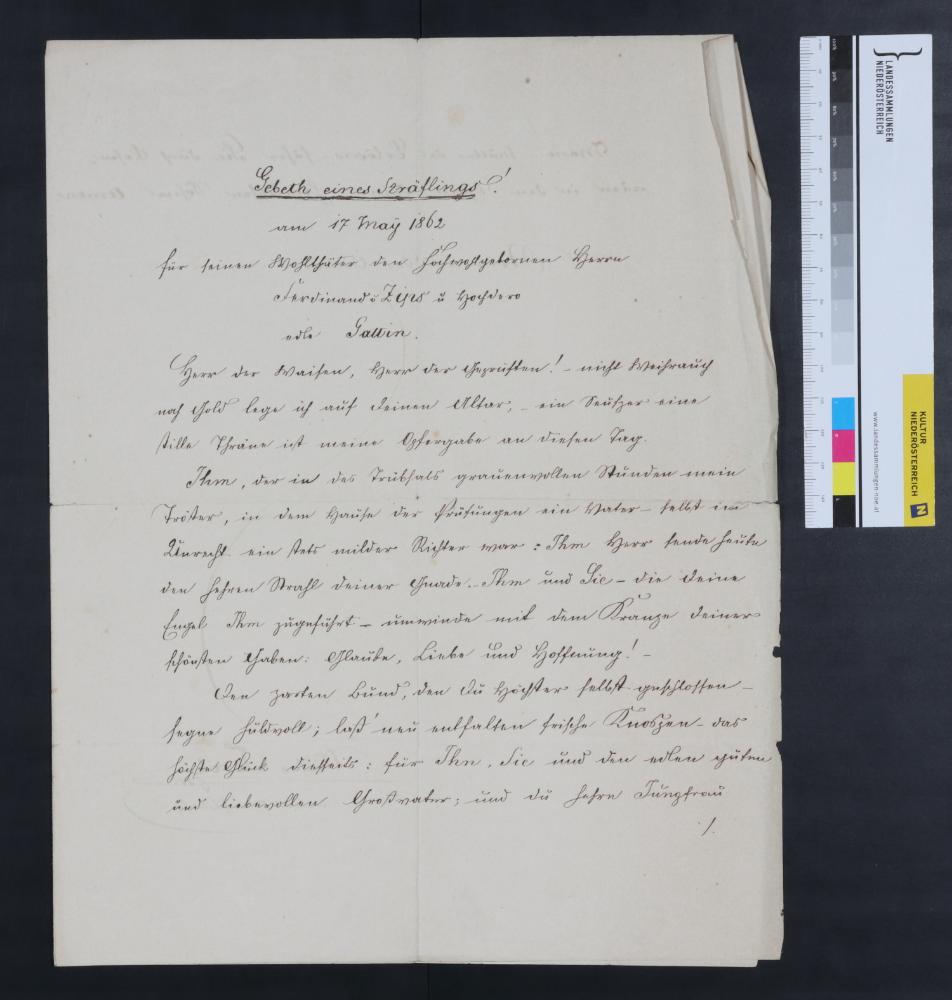 Gebeth eines Sträflings!
am 17 Maÿ 1862
für seinen Wohlthäter den Hochwohlgebornen Herrn
Ferdinand v u Hochdero
edle Gattin.
Herr der Waisen, Herr der Geprüften! – nicht Weihrauch
noch Gold lege ich auf deinen Altar, – ein Seufzer eine
stille Thräne ist meine Opfergabe an diesen Tag.
Ihm, der in des Trübsals grauenvollen Stunden mein
Tröster, in dem Hause der Prüfungen ein Vater – selbst im
Unrecht ein stets milder Richter war: Ihm Herr sende heute
den hehren Strahl deiner Gnade. – Ihm und Sie – die deine
Engel Ihm zugeführt – umwinde mit dem Kranze deiner
schönsten Gaben: Glaube, Liebe und Hoffnung! –
Den zarten Bund, den du Höchster selbst geschlossen –
segne huldvoll; laß neu entfalten frische Knospen – das
höchste Glück diesseits: für Ihn, Sie und den edlen guten
und liebevollen Großvater; und du hehre Jungfrau
./.
LANDESSAMMLUNGEN
NIEDERÖSTERREICH
www.landessammlungen-noe.at
KULTUR
NIEDERÖSTERREICH
N